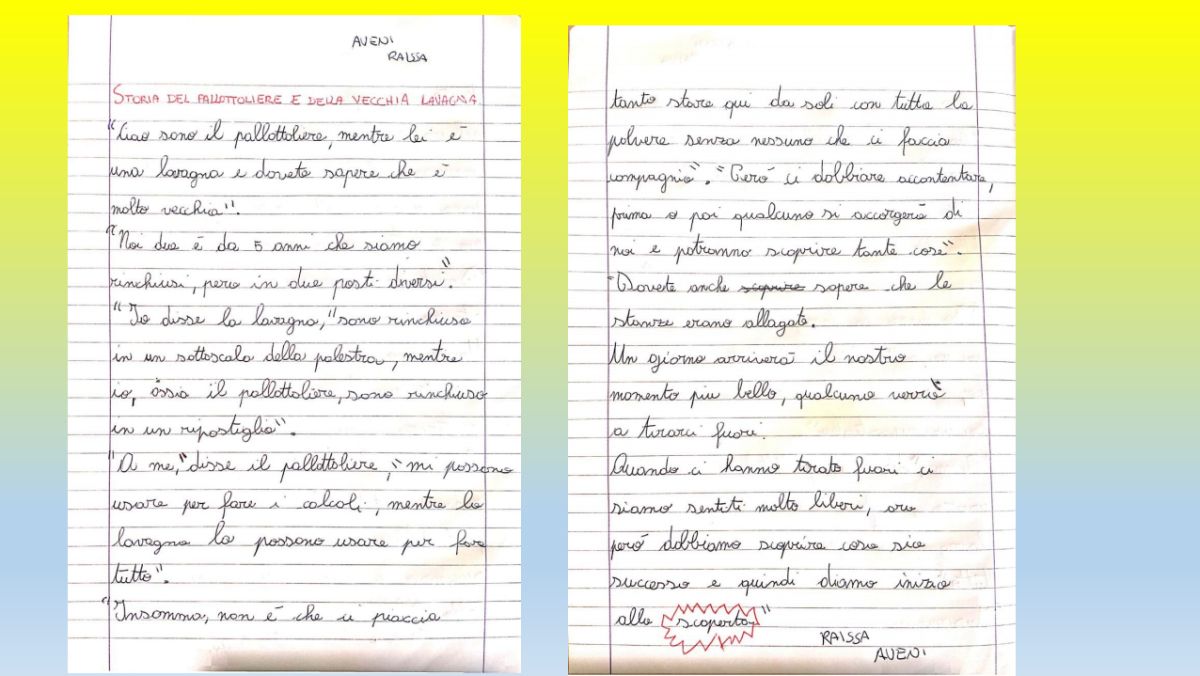 AVENI
RAISSA
STORIA DEL PALLOTTOLIERE E DELLA VECCHIA LAVAGNA.
"Ciao sono il pallottoliere, mentre lei è
una lavagna e dovete sapere che è
molto vecchia".
"Noi due è da 5 anni che siamo
rinchiusi, pero in due posti diversi."
"Io disse la lavagna," sono rinchiusa
in un sottoscala della palestra, mentre
io, ossia il pallottoliere, sono rinchiuso
in un ripostiglio".
"A me," disse il pallottoliere, "mi possono
usare per fare i calcoli, mentre la
lavagna la possono usare per fare
tutto".
"Insomma, non è che ci piaccia
tanto stare qui da soli con tutta la
polvere senza nessuno che ci faccia
compagnia". "Però ci dobbiare accontentare,
prima o poi qualcuno si accorgerà di
noi e potranno scoprire tante cose".
"Dovete anche scoprire sapere che le
stanze erano allagate.
Un giorno arriverà il nostro
momento piu bello, qualcuno verrà
a tirarci fuori.
Quando ci hanno tirato fuori ci
siamo sentiti molto liberi, ora
però dobbiamo scoprire cosa sia
successo e quindi diamo inizio
alla scoperta"
RAISSA
AVENI